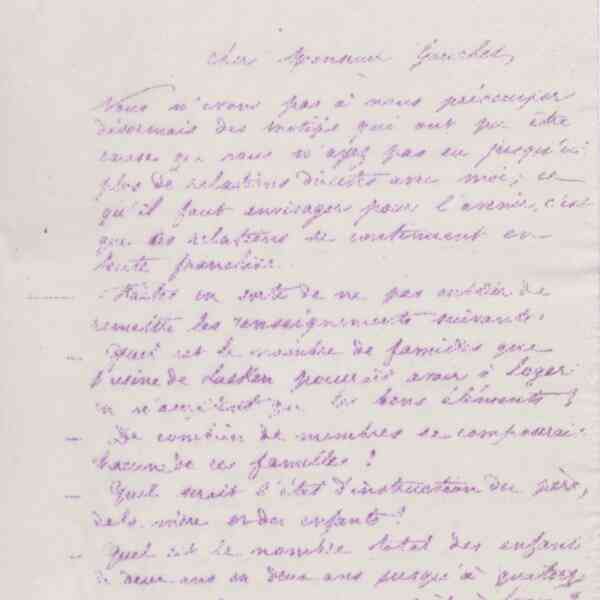 Cher Monsieur Gaucher,
Nous n'avons pas à nous préoccuper
désormais des motifs qui ont pu être
causes que vous n'ayez pas eu jusqu'ici
plus de relations directes avec moi; ce
qu'il faut envisager pour l'avenir, c'est
que ces relations se continuent en
toute franchise.
Faites en sorte de ne pas oublier de
remettre les renseignements suivants:
— Quel est le nombre de familles que
l'usine de Laeken pourrait avoir à loger
en n'acceptant que les bons éléments?
— De combien de membres se composerait
chacune de ces familles?
— Quel serait l'état d'instruction du père,
de la mère et des enfants?
— Quel est le nombre total des enfants
de deux ans en deux ans jusqu'à quatorze